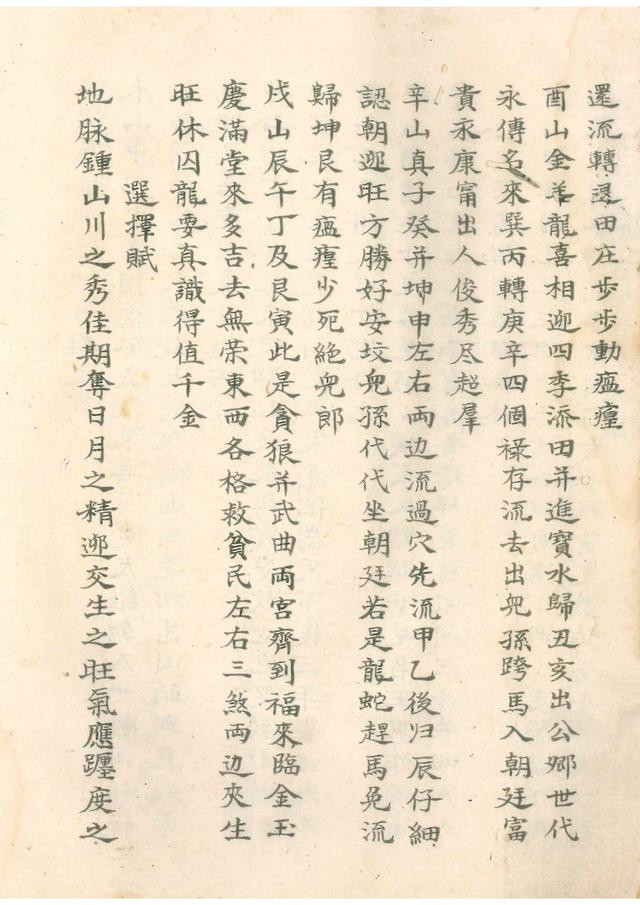 還流轉退田庄步步動瘟㾮
酉山金羊龍喜相迎四季添田并進寶水歸丑亥出公卿世代
永傳名來巽丙轉庚辛四個祿存流去出兒孫跨馬入朝廷富
貴永康甯出人俊秀尽超羣
辛山真子癸并坤申左右両边流過穴先流甲乙後归辰仔細
認朝迎旺方勝好安坟兒孫代代坐朝廷若是龍蛇趕馬兔流
歸坤艮有瘟㾮少死絕兒郎
戌山辰午丁及艮寅此是貪狼并武曲両宮齊到福來臨金玉
慶滿堂來多吉去無荣東西各格救貧民左右三煞両边夾生
旺休囚龍要真識得值千金
選擇賦
地脉鍾山川之秀佳期奪日月之精迎交生之旺氣應躔度之